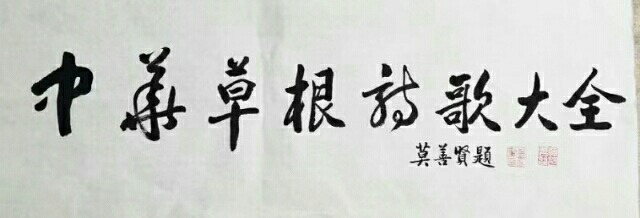 中華草根詩歌大全
莫善賢題